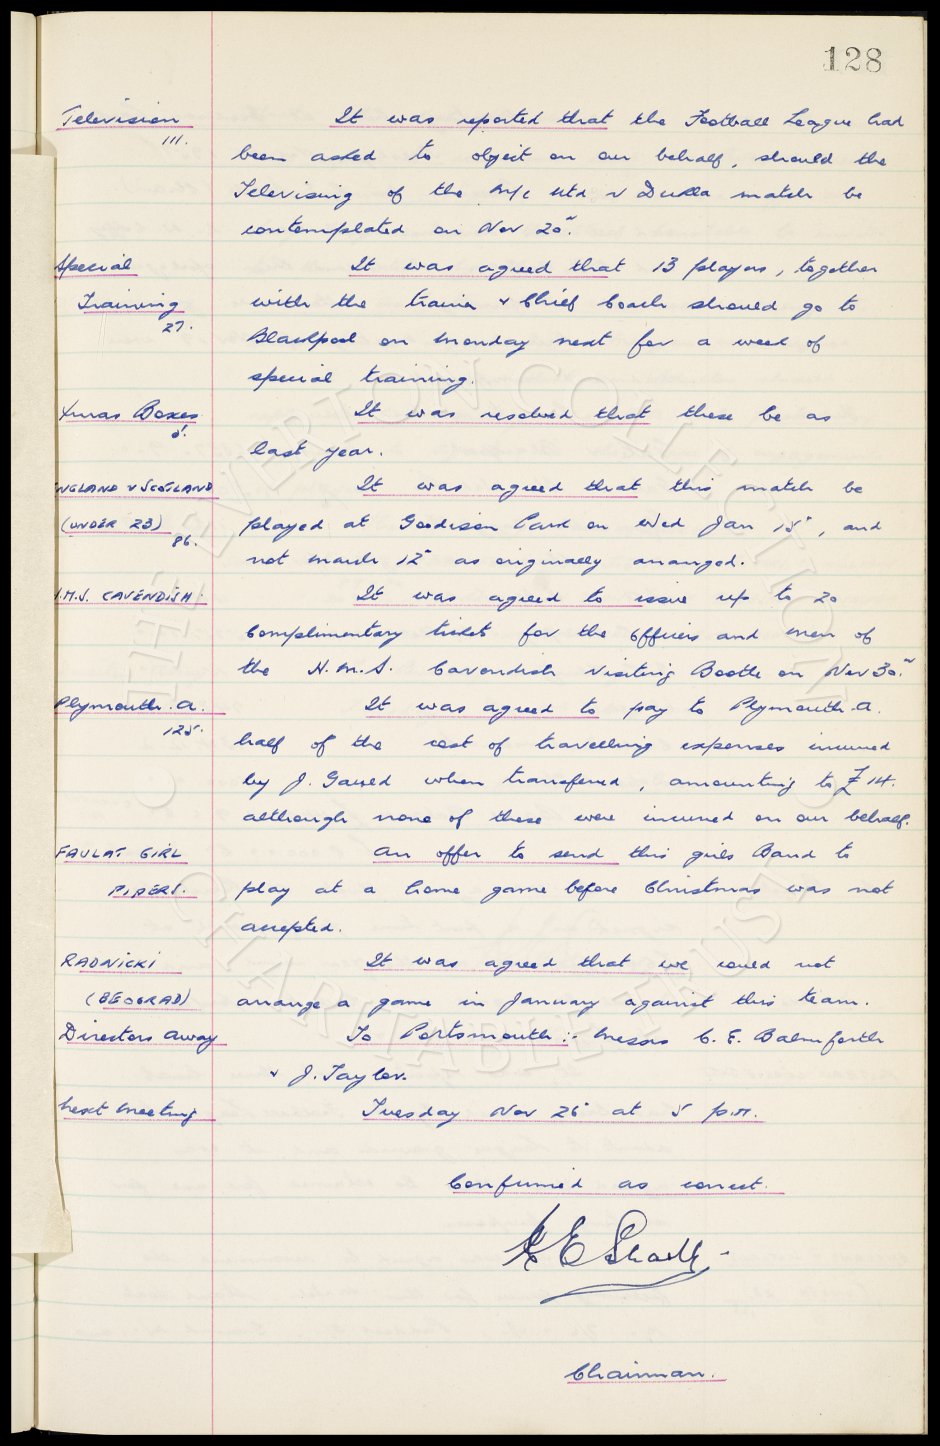 128
Television It was reported that the Football League had
111. been asked to object on our behalf, should the
Televising of the M/c Utd v Dukla match be
contemplated on Nov 20".
Special It was agreed that 13 players, together
Training with the trainer & Chief Coach should go to
27. Blackpool on Monday next for a week of
special training.
Xmas Boxes It was resolved that these be as
5! last year.
ENGLAND v SCOTLAND It was agreed that this match be
(UNDER 23) played at Goodison Park on Wed Jan 15", and
86. not March 12" as originally arranged.
H.M.S. CAVENDISH. It was agreed to issue up to 20
Complimentary tickets for the officers and men of
the H.M.S. Cavendish visiting Bootle on Nov 30".
Plymouth. A. It was agreed to pay to Plymouth. A.
125. half of the cost of travelling expenses incurred
by J. Gauld when transferred, amounting to £14.
although none of these were incurred on our behalf.
FAULAT GIRL An offer to send this girls Band to
PIPERS. play at a home game before Christmas was not
accepted.
RADNICKI It was agreed that we could not
(BEOGRAD) arrange a game in January against this team.
Directors Away To Portsmouth :- Messrs C. E. Balmforth
& J. Taylor.
Next Meeting Tuesday Nov 26" at 5 p.m.
Confirmed as correct.
Chairman.
THE EVERTON COLLECTION
CHARITABLE TRUST